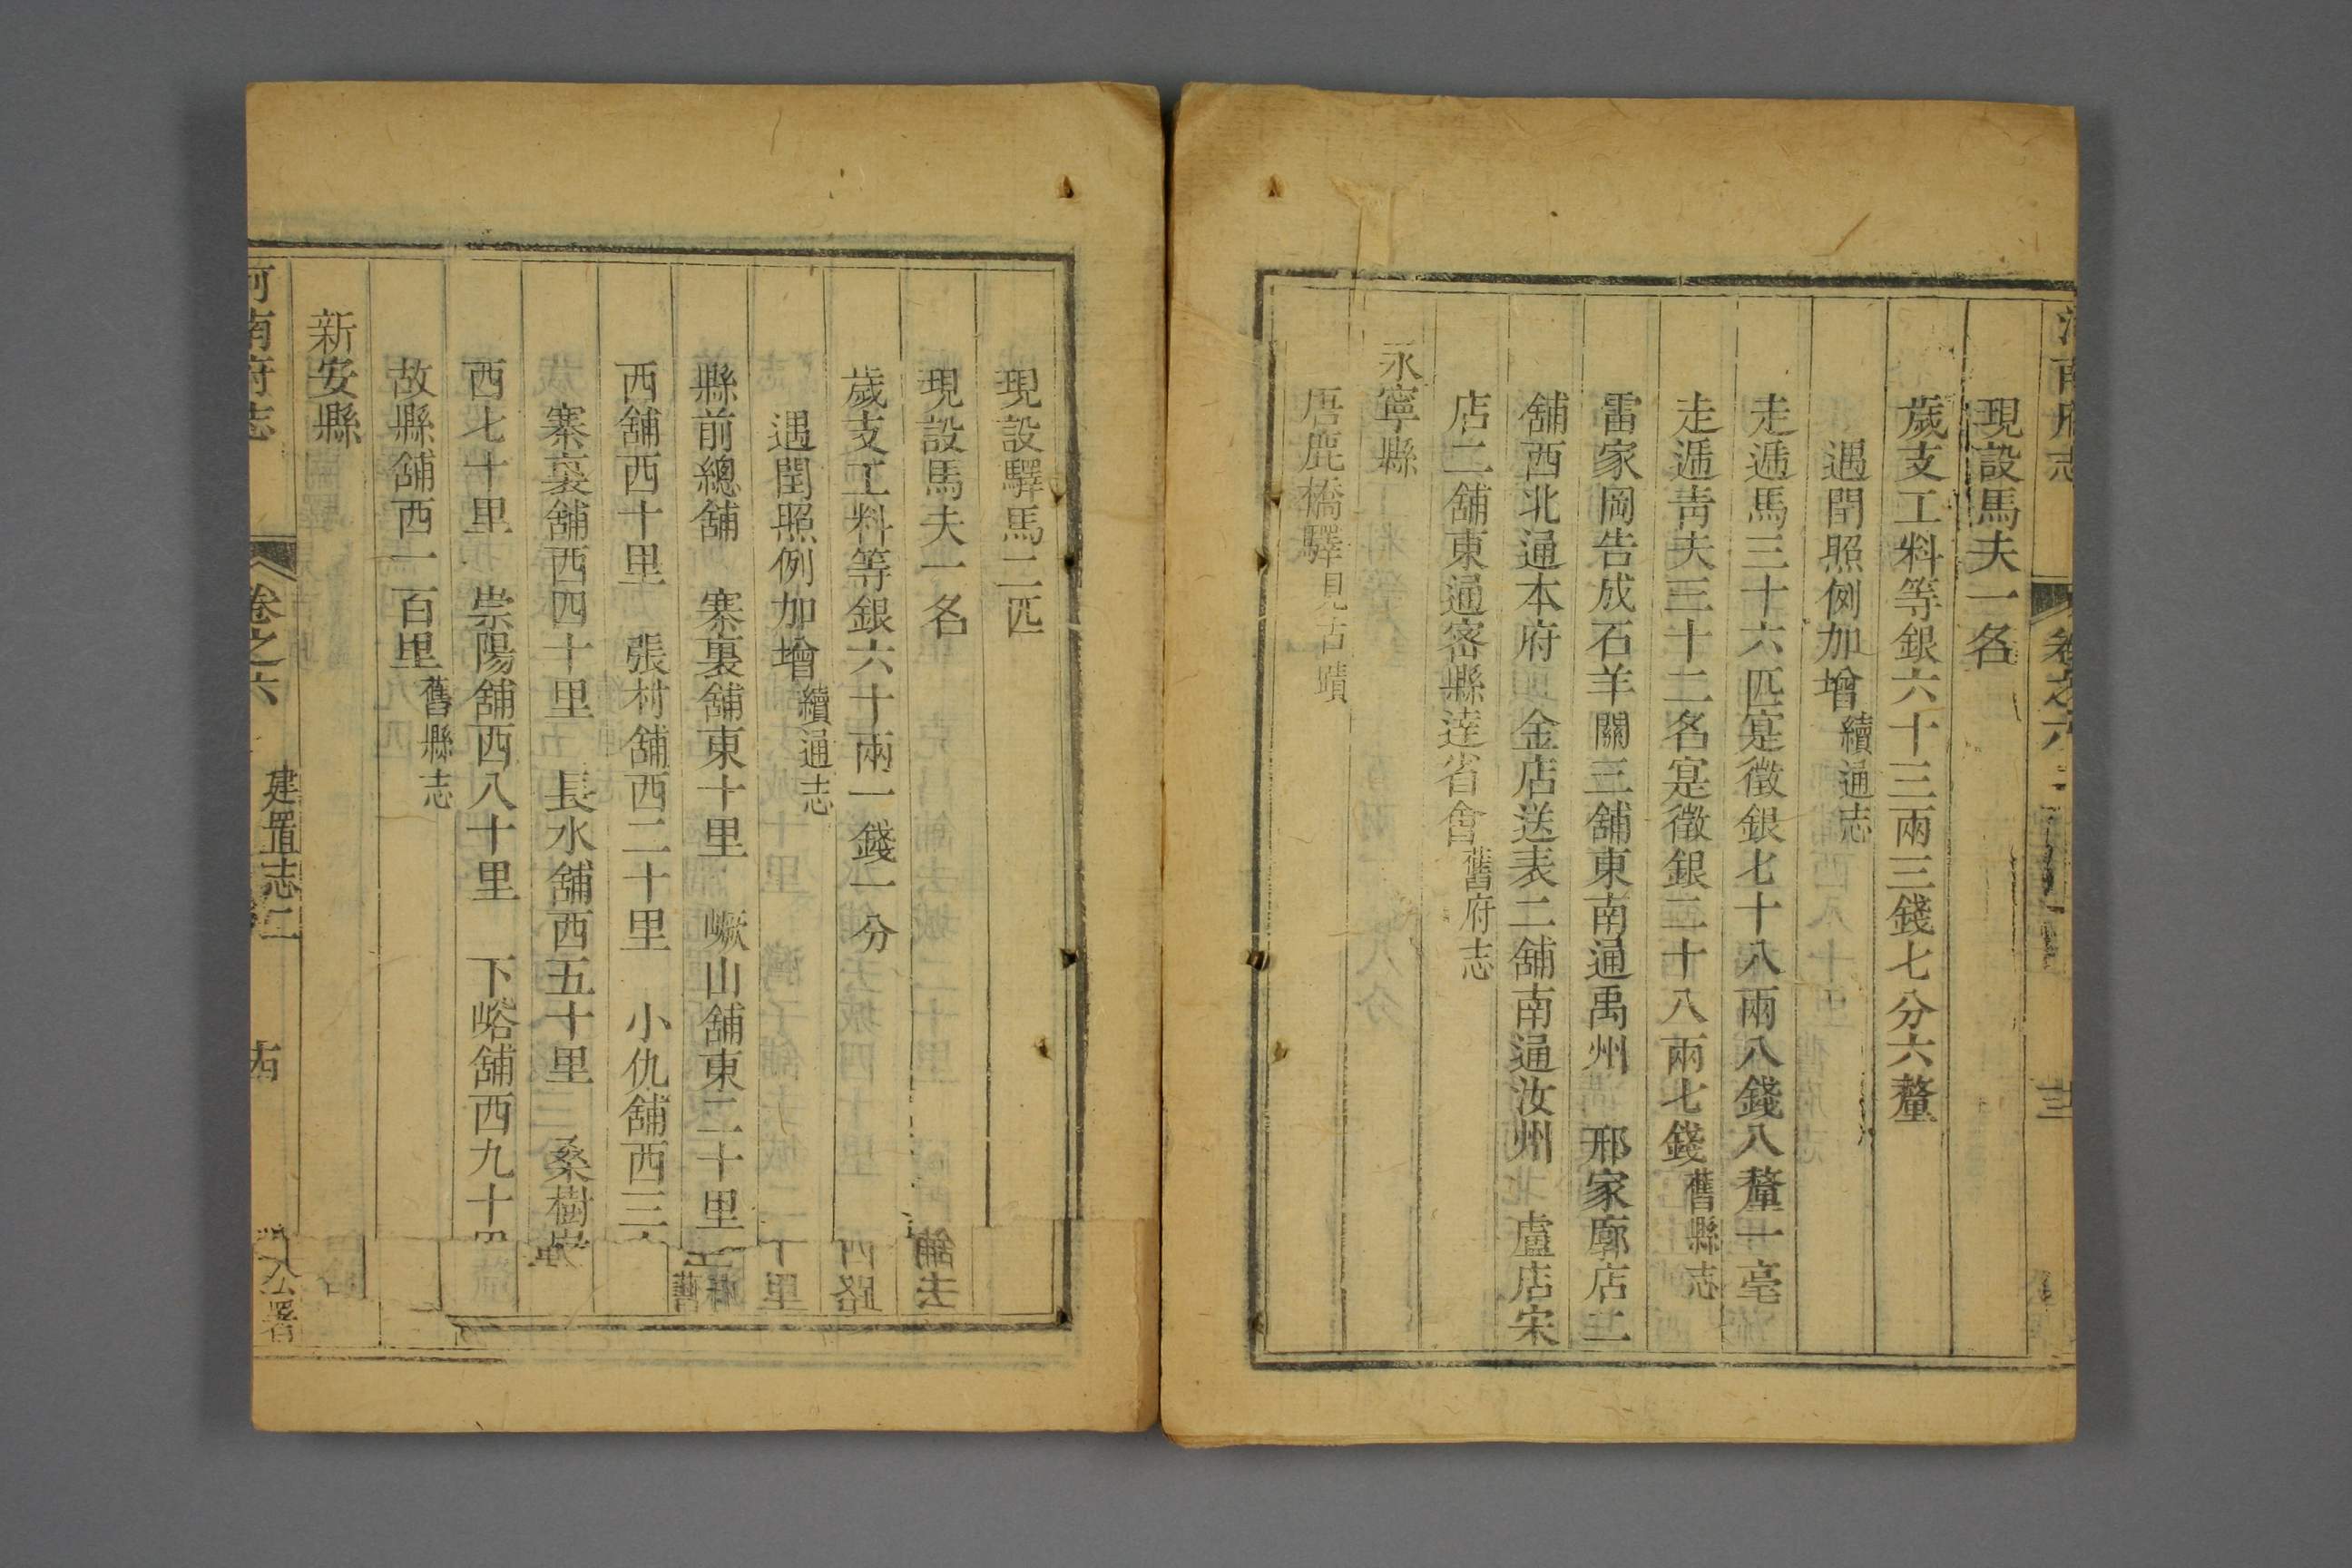 現設馬夫一名
歲支工料等銀六十三兩三錢七分六釐
遇閏照例加增續通志
走遞馬三十六匹寔徵銀七十八兩八錢八釐一亳
走遞青夫三十二名寔徵銀二十八兩七錢舊縣志
雷家岡告成石羊關三舖東南通禹州 邢家廓店二
舖西北通本府 金店送表二舖南通汝州 盧店宋
店二舖東通密縣達省會舊府志
永寧縣
唐鹿橋驛見古蹟
現設驛馬二匹
現設馬夫一名
歲支工料等銀六十兩一錢一分
遇閏照例加增續通志
縣前總舖 寨裏舖東十里 嶥山舖東二十里
西舖西十里 張村舖西二十里 小仇舖西三
寨裏舖西四十里 長水舖西五十里 桑樹
西七十里 崇陽舖西八十里 下峪舖西九十
故縣舖西一百里舊縣志
新安縣
河南府志 卷之六 建置志二 公署